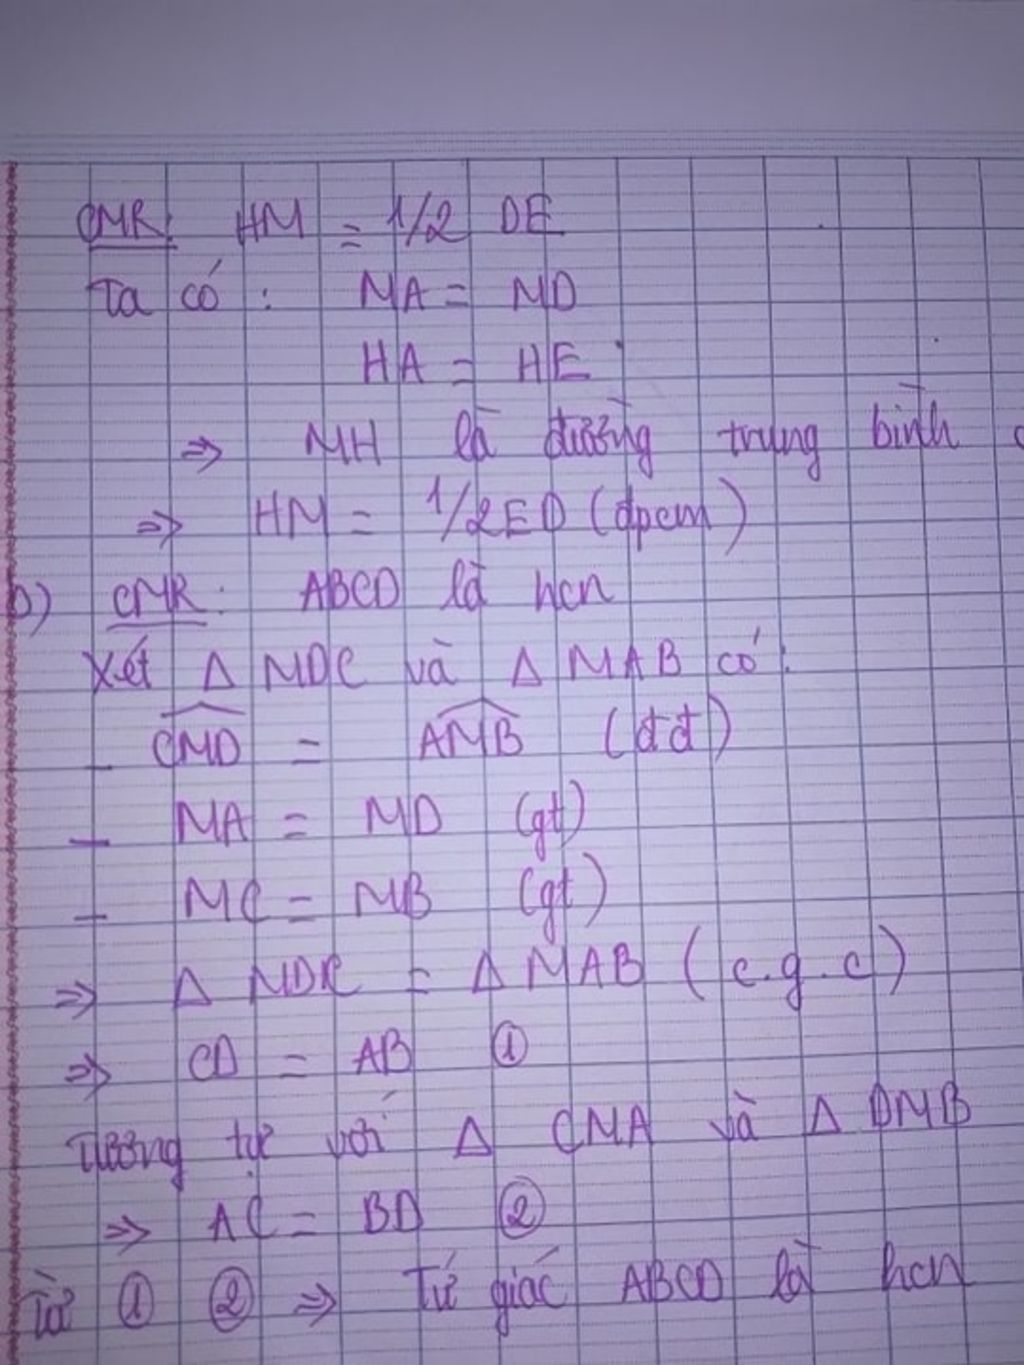 CMR: HM = 1/2 DE
Ta có: MA = MD
HA = HE
=> MH là đường trung bình
=> HM = 1/2 ED (đpcm)
b) CMR: ABCD là hcn
Xét Δ MDC và Δ MAB có:
- CMD = AMB (đđ)
- MA = MD (gt)
- MC = MB (gt)
=> Δ MDC = Δ MAB (c.g.c)
=> CD = AB ①
Tương tự với Δ CMA và Δ DMB
=> AC = BD ②
Từ ① ② => Tứ giác ABCD là hcn